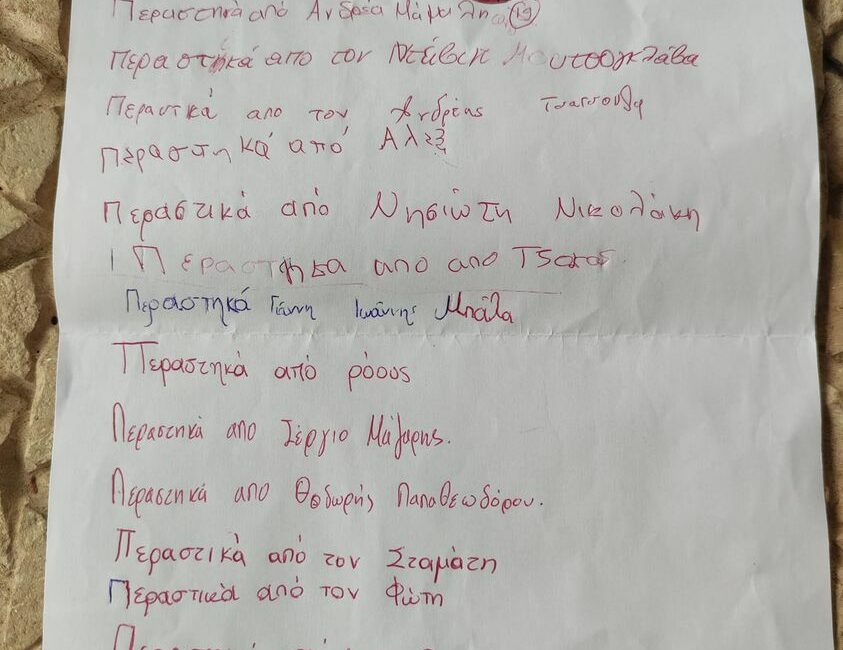 Περαστηκά από Ανδρέα Μάμαλη 19
Περαστηκά απο τον Ντέιβιντ
Περαστικά απο τον Ανδρέας
Πέραστηκά από Αλεξ
Περαστικά από Νησιώτη Νικολάκη
Περαστηκα απο απο
Περαστηκά Γιάννη Ιωάννης Μπάλα
Περαστηκά από ρόσους
Περαστηκά απο Σέργιο Μάζαρης.
Περαστηκά απο Θοδωρής Παπαθεωδόρου.
Περαστικά από τον Σταμάτη
Περαστικά από τον Φώτη